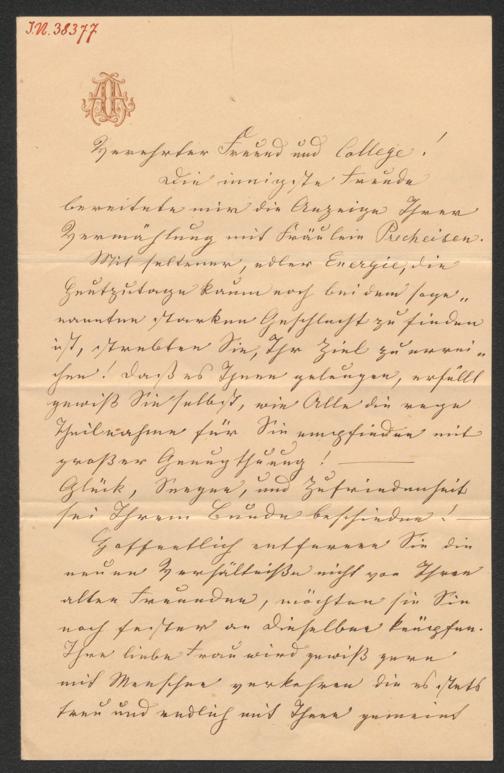 I.N. 38377
Verehrter Freund und College!
Die innigste Freude
bereitete mir die Anzeige Ihrer
Vermählung mit Fräulein Precheisen.
Mit seltener, edler Energie, die
heutzutage kaum noch bei dem soge„
nannten starken Geschlecht zu finden
ist, strebten Sie, Ihr Ziel zu errei„
chen! Daß es Ihnen gelungen, erfüllt
gewiß Sie selbst, wie Alle die rege
Theilnahme für Sie empfinden mit
großer Genugthuung! —
Glück, Seegen, und Zufriedenheit
sei Ihrem Bunde beschieden! —
Hoffentlich entfernen Sie die
neuen Verhältniße nicht von Ihren
alten Freunden, möchten sie Sie
noch fester an Dieselben knüpfen.
Ihre liebe Frau wird gewiß gern
mit Menschen verkehren die es stets
treu und endlich mit Ihnen gemeint